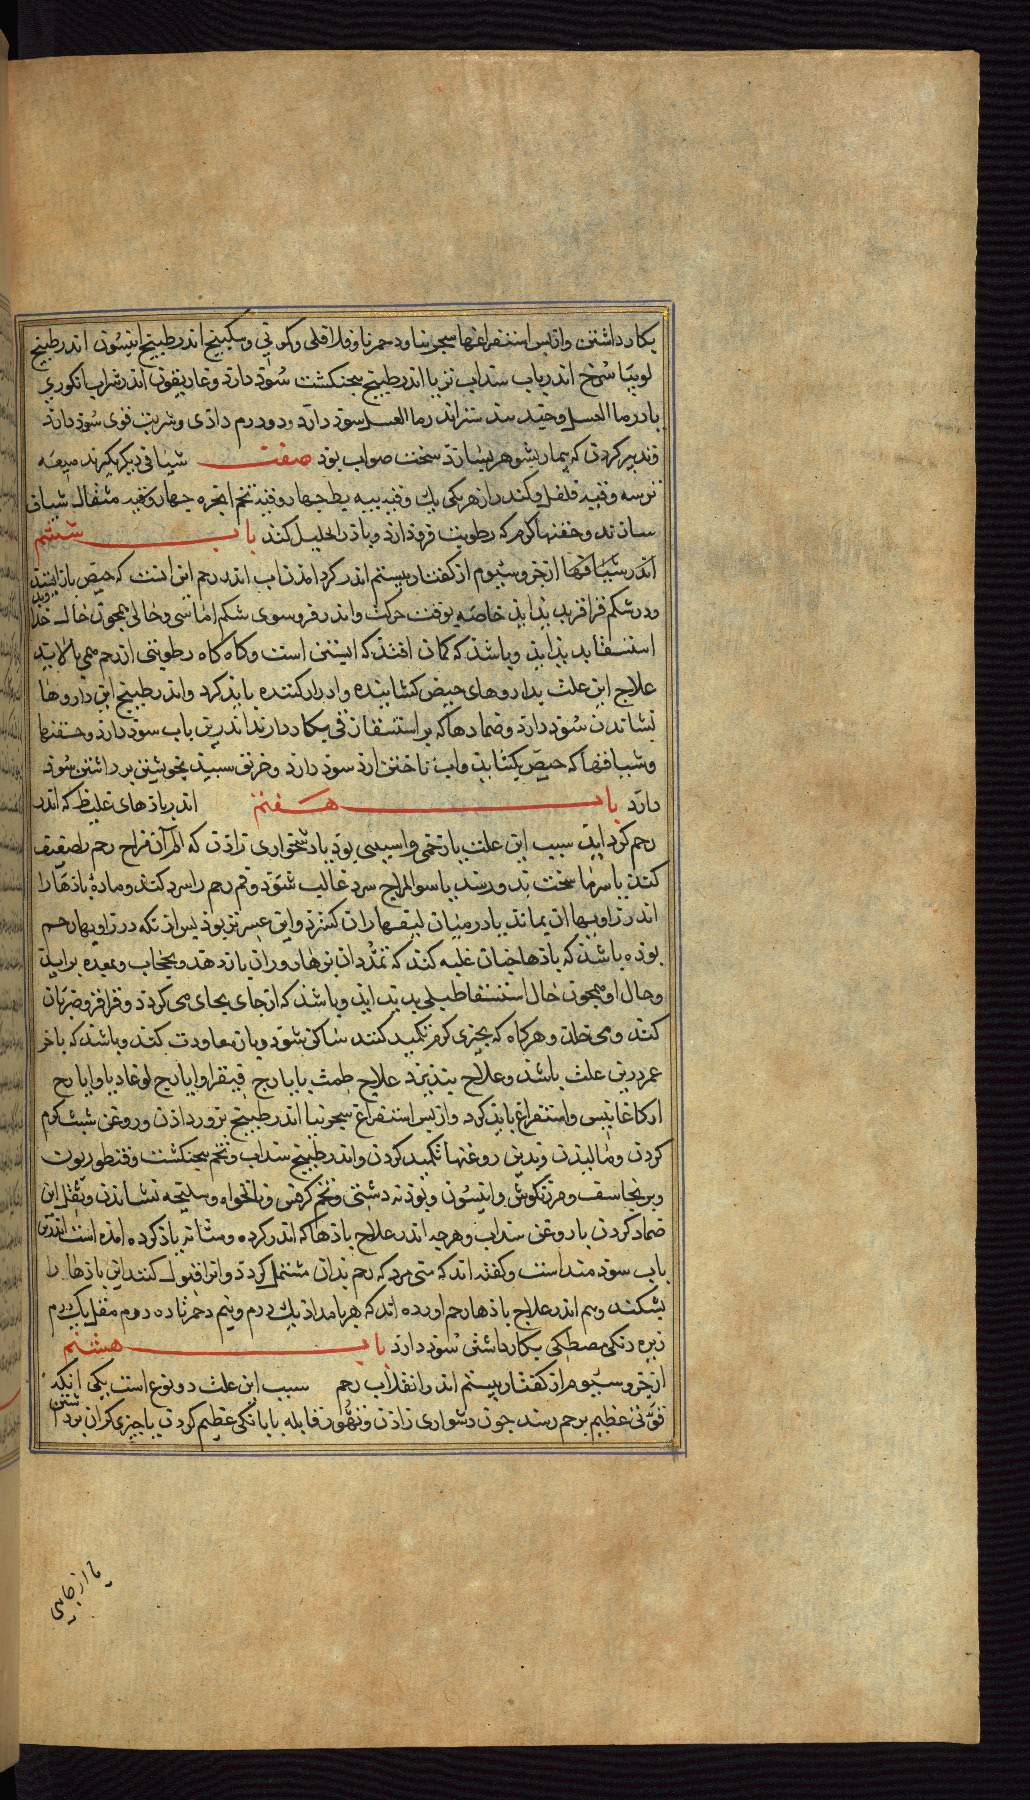 بکار داشتن وازپس استفراغها سجرنیا ودحمرثا وفلافلی وکمونی وسکبینج اندر طبیخ انیسون اندر طبیخ
لوبیا سرخ اندر باب سداب تریاا اندر طبیخ پنجنکشت سود دارد وغاریقون اندر شراب انکوری
یا در ما العسل وجند بیدستر اندر ما العسل سود دارد ودو درم دادی وشربت قوی سود دارد
وتدبیر کردن که بیمار بشوهر بسازد سخت صواب بود صفت شیافی دیکر بکیرند میعه
ترسه وقیه فلفل وکندر از هریکی یک وقیه پیه بط چهار وقیه تخم انجره چهار وقیه مثقال شیاف
سازند وحقنها کرم که رطوبت فرود ارد وباذ را تحلیل کند باب ششم
از جزو سیوم از کفتار بیستم اندر کرد امدن اب اندر رحم این است که حیض باز ایستد
ودر شکم قراقر پدید اید خاصه بوقت حرکت واندر فروسوی شکم اماسی وحالی همچون حال خداوند
استسقا پدید اید وباشد که کمان افتد که ابستن است وکاه کاه رطوبتی از رحم همی پالاید
علاج این علت بداروهای حیض کشاینده وادرار کننده باید کرد واندر طبیخ این داروها
نشاندن سود دارد وضمادها که بر استسقا زقی بکار دارند اندرین باب سود دارد وحقنها
وشیافها که حیض بکشاید واب تاختن ارد سود دارد وخربق سپید بخویشتن برداشتن سود
دارد باب هفتم اندر بادهای غلیظ که اندر
رحم کرد اید سبب این علت یا زخمی واسیبی بود یا دشخواری زادن که الم آن مزاج رحم را ضعیف
کند یا سرما سخت بدو رسد یا سوالمزاج سرد غالب شود وفم رحم را سرد کند ومادهٔ باذها را
اندر زاویها ان بماند یا در میان لیفها ان کسترد واین عسرتر بود پس انکه در زاویها رحم
بوده باشد که باذها چنان غلبه کند که تمدد ان برها روران باز دهد وبحجاب ومعده براید
وحال او همچون حال استسقا طبلی پدید اید وباشد که از جای بجای می کردد وقراقر وضربان
کند ومی خلد وهرکاه که بچیزی کرم تکمید کنند ساکن شود وبازمعاودت کند وباشد که باخر
عمر درین علت باشد وعلاج نپذیرد علاج طمث بایارج فیقرا وایارج لوغادیا وایارج
ارکاغانیس واستفراغ باید کرد وازپس استفراغ سجرنیا اندر طبیخ بزور دادن وروغن شبت کرم
کردن ومالیدن وبدین روغنها تکمید کردن واندر طبیخ سداب وتخم پنجنکشت وقنطوریون
وبرنجاسف ومرزنکوش وانیسون وپودنه دشتی وتخم کرفس ونانخواه وسلیخه نشاندن وبثفل این
ضماد کردن با روغن سداب وهرچه اندر علاج باذها که اندر کرده ومثانه یاذ کرده امده است اندرین
باب سودمند است وکفته اند که منی مرد که رحم بدان مشتمل کردد وانرا قبول کنند این باذها را
بشکند وهم اندر علاج باذها رحم اورده اند که هر بامداذ یک درم ونیم دحمرثا ده دوم مقل یک درم
زیره زنکی مصطکی بکار داشتن سود دارد باب هشتم
از جزو سیوم از کفتار بیستم اندر انقلاب رحم سبب این علت دو نوع است یکی انکه
قوتی عظیم برحم رسد جون دشواری زاذن وتهور قابله یا بانکی عظیم کردن یا جیزی کران برداشتن